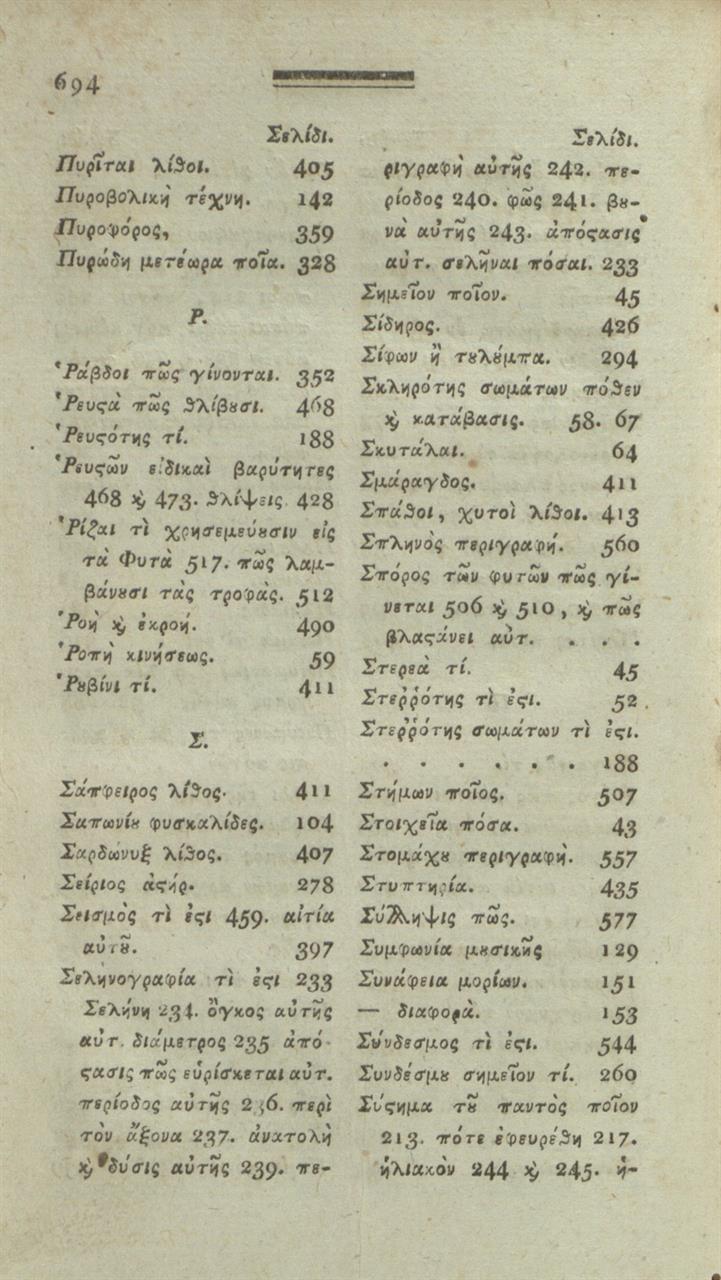 694
Σελίδι.
Πυρῖται λίθοι. 405
Πυροβολικὴ τέχνη. 142
Πυροφόρος, 359
Πυρώδη μετέωρα ποῖα. 328
Ρ.
Ῥάβδοι πῶς γίνονται. 352
Ῥευϛὰ πῶς θλίβȣσι. 468
Ῥευϛότης τί. 188
Ῥευϛῶν εἰδικαὶ βαρύτητες
468 ϗ 473. θλίψεις 428
Ῥίζαι τὶ χρησεμεύȣσιν εἰς
τὰ Φυτὰ 517. πῶς λαμ-
βάνȣσι τὰς τροφὰς. 512
Ῥοὴ ϗ ἐκροή. 490
Ῥοπὴ κινήσεως. 59
Ῥȣβίνι τί. 411
Σ.
Σάπφειρος λίθος. 411
Σαπωνίȣ φυσκαλίδες. 104
Σαρδώνυξ λίθος. 407
Σείριος ἀϛήρ. 278
Σεισμὸς τὶ ἐϛι 459. αἰτία
αὐτȣ͂. 397
Σεληνογραφία τὶ ἐϛι 233
Σελήνη 234. ὄγκος αὐτῆς
αὐτ. διάμετρος 235 ἀπό
ϛασις πῶς εὑρίσκεται αὐτ.
περίοδος αὐτῆς 236. περὶ
τὸν ἄξονα 237. ἀνατολὴ
ϗ δύσις αὐτῆς 239. πε-
Σελίδι.
ριγραφὴ αὐτῆς 242. πε-
ρίοδος 240. φῶς 241. βȣ-
νὰ αὐτῆς 243. ἀπόϛασις
αὐτ. σελῆναι πόσαι. 233
Σημεῖον ποῖον. 45
Σίδηρος. 426
Σίφων ἢ τȣλȣ́μπα. 294
Σκληρότης σωμάτων πόθεν
ϗ κατάβασις. 58. 67
Σκυτάλαι. 64
Σμάραγδος. 411
Σπάθοι, χυτοὶ λίθοι. 413
Σπληνὸς περιγραφή. 560
Σπόρος τῶν φυτῶν πῶς γί-
νεται 506 ϗ 510, ϗ πῶς
βλαϛάνει αὐτ. . . .
Στερεὰ τί. 45
Στεῤῥότης τὶ ἐϛι. 52.
Στεῤῥότης σωμάτων τὶ ἐϛι.
. . . . . . 188
Στήμων ποῖος. 507
Στοιχεῖα πόσα. 43
Στομάχȣ περιγραφὴ. 557
Στυπτηρία. 435
Σύλληψις πῶς. 577
Συμφωνία μȣσικῆς 129
Συνάφεια μορίων. 151
— διαφορὰ. 153
Σύνδεσμος τὶ ἐϛι. 544
Συνδέσμȣ σημεῖον τί. 260
Σύϛημα τȣ͂ παντὸς ποῖον
213. πότε ἐφευρέθη 217.
ἡλιακὸν 244 ϗ 245. ἡ-